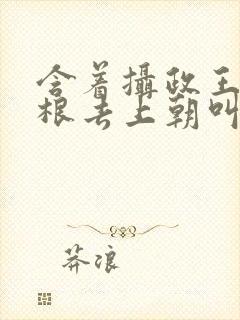 含着攝政王
根去上朝叫
莽浪